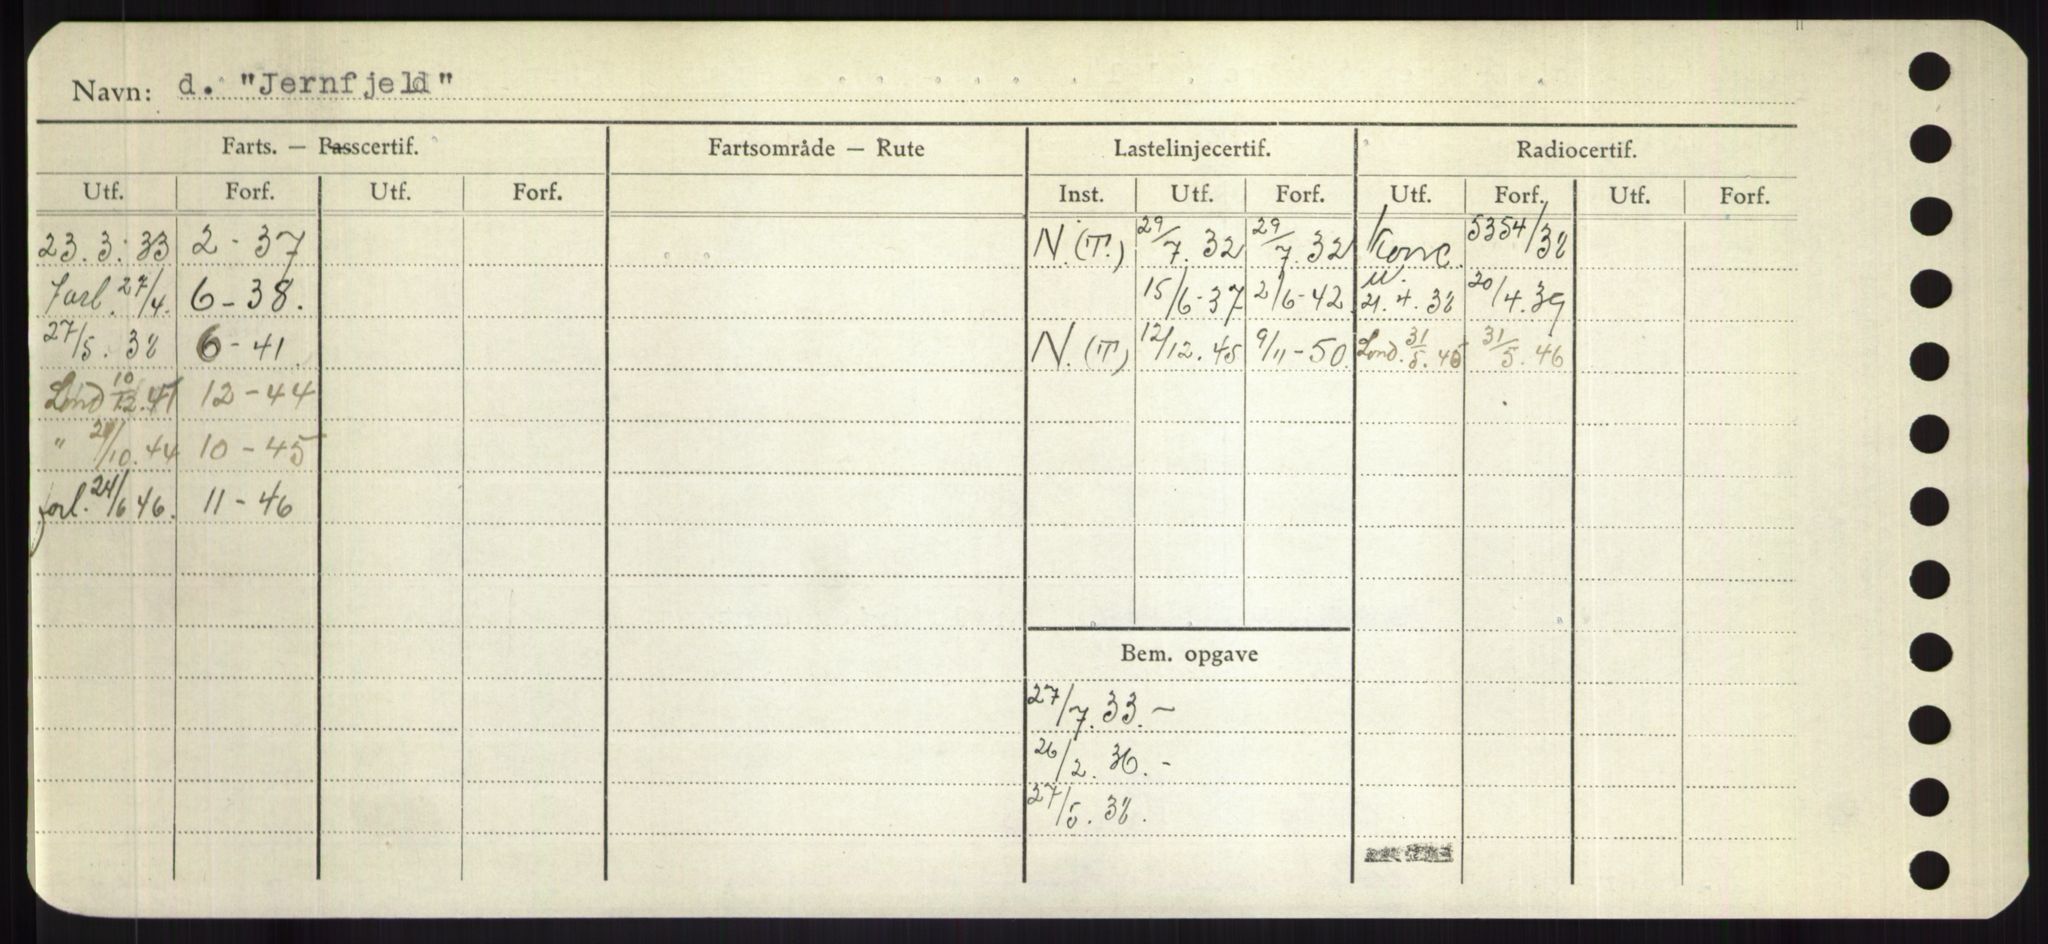 Navn: d. "Jernfjeld"
Farts. — Passcertif. Fartsområde — Rute Lastelinjecertif. Radiocertif.
Utf. Forf. Utf. Forf. Inst. Utf. Forf. Utf. Forf. Utf. Forf.
23.3.33 2-37 N.(T.) 29/7.32 29/7.32 Konc. 5354/38
forl. 27/4. 6-38. 15/6-37 2/6-42 u. 21.4.38 20/4.39
27/5.38 6-41 N.(T) 12/12.45 9/11-50 Lond. 31/5.45 31/5.46
Lond 10/12.41 12-44
" /10.44 10-45
forl. 24/6 46. 11-46
Bem. opgave
27/7.33.-
26/2.36.-
27/5.38.